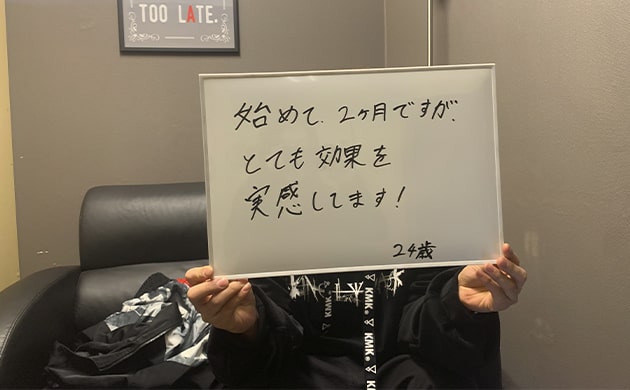 TOO LATE.
始めて、2ヶ月ですが、
とても効果を
実感してます!
24歳
KMK®
KMK®
KMK®